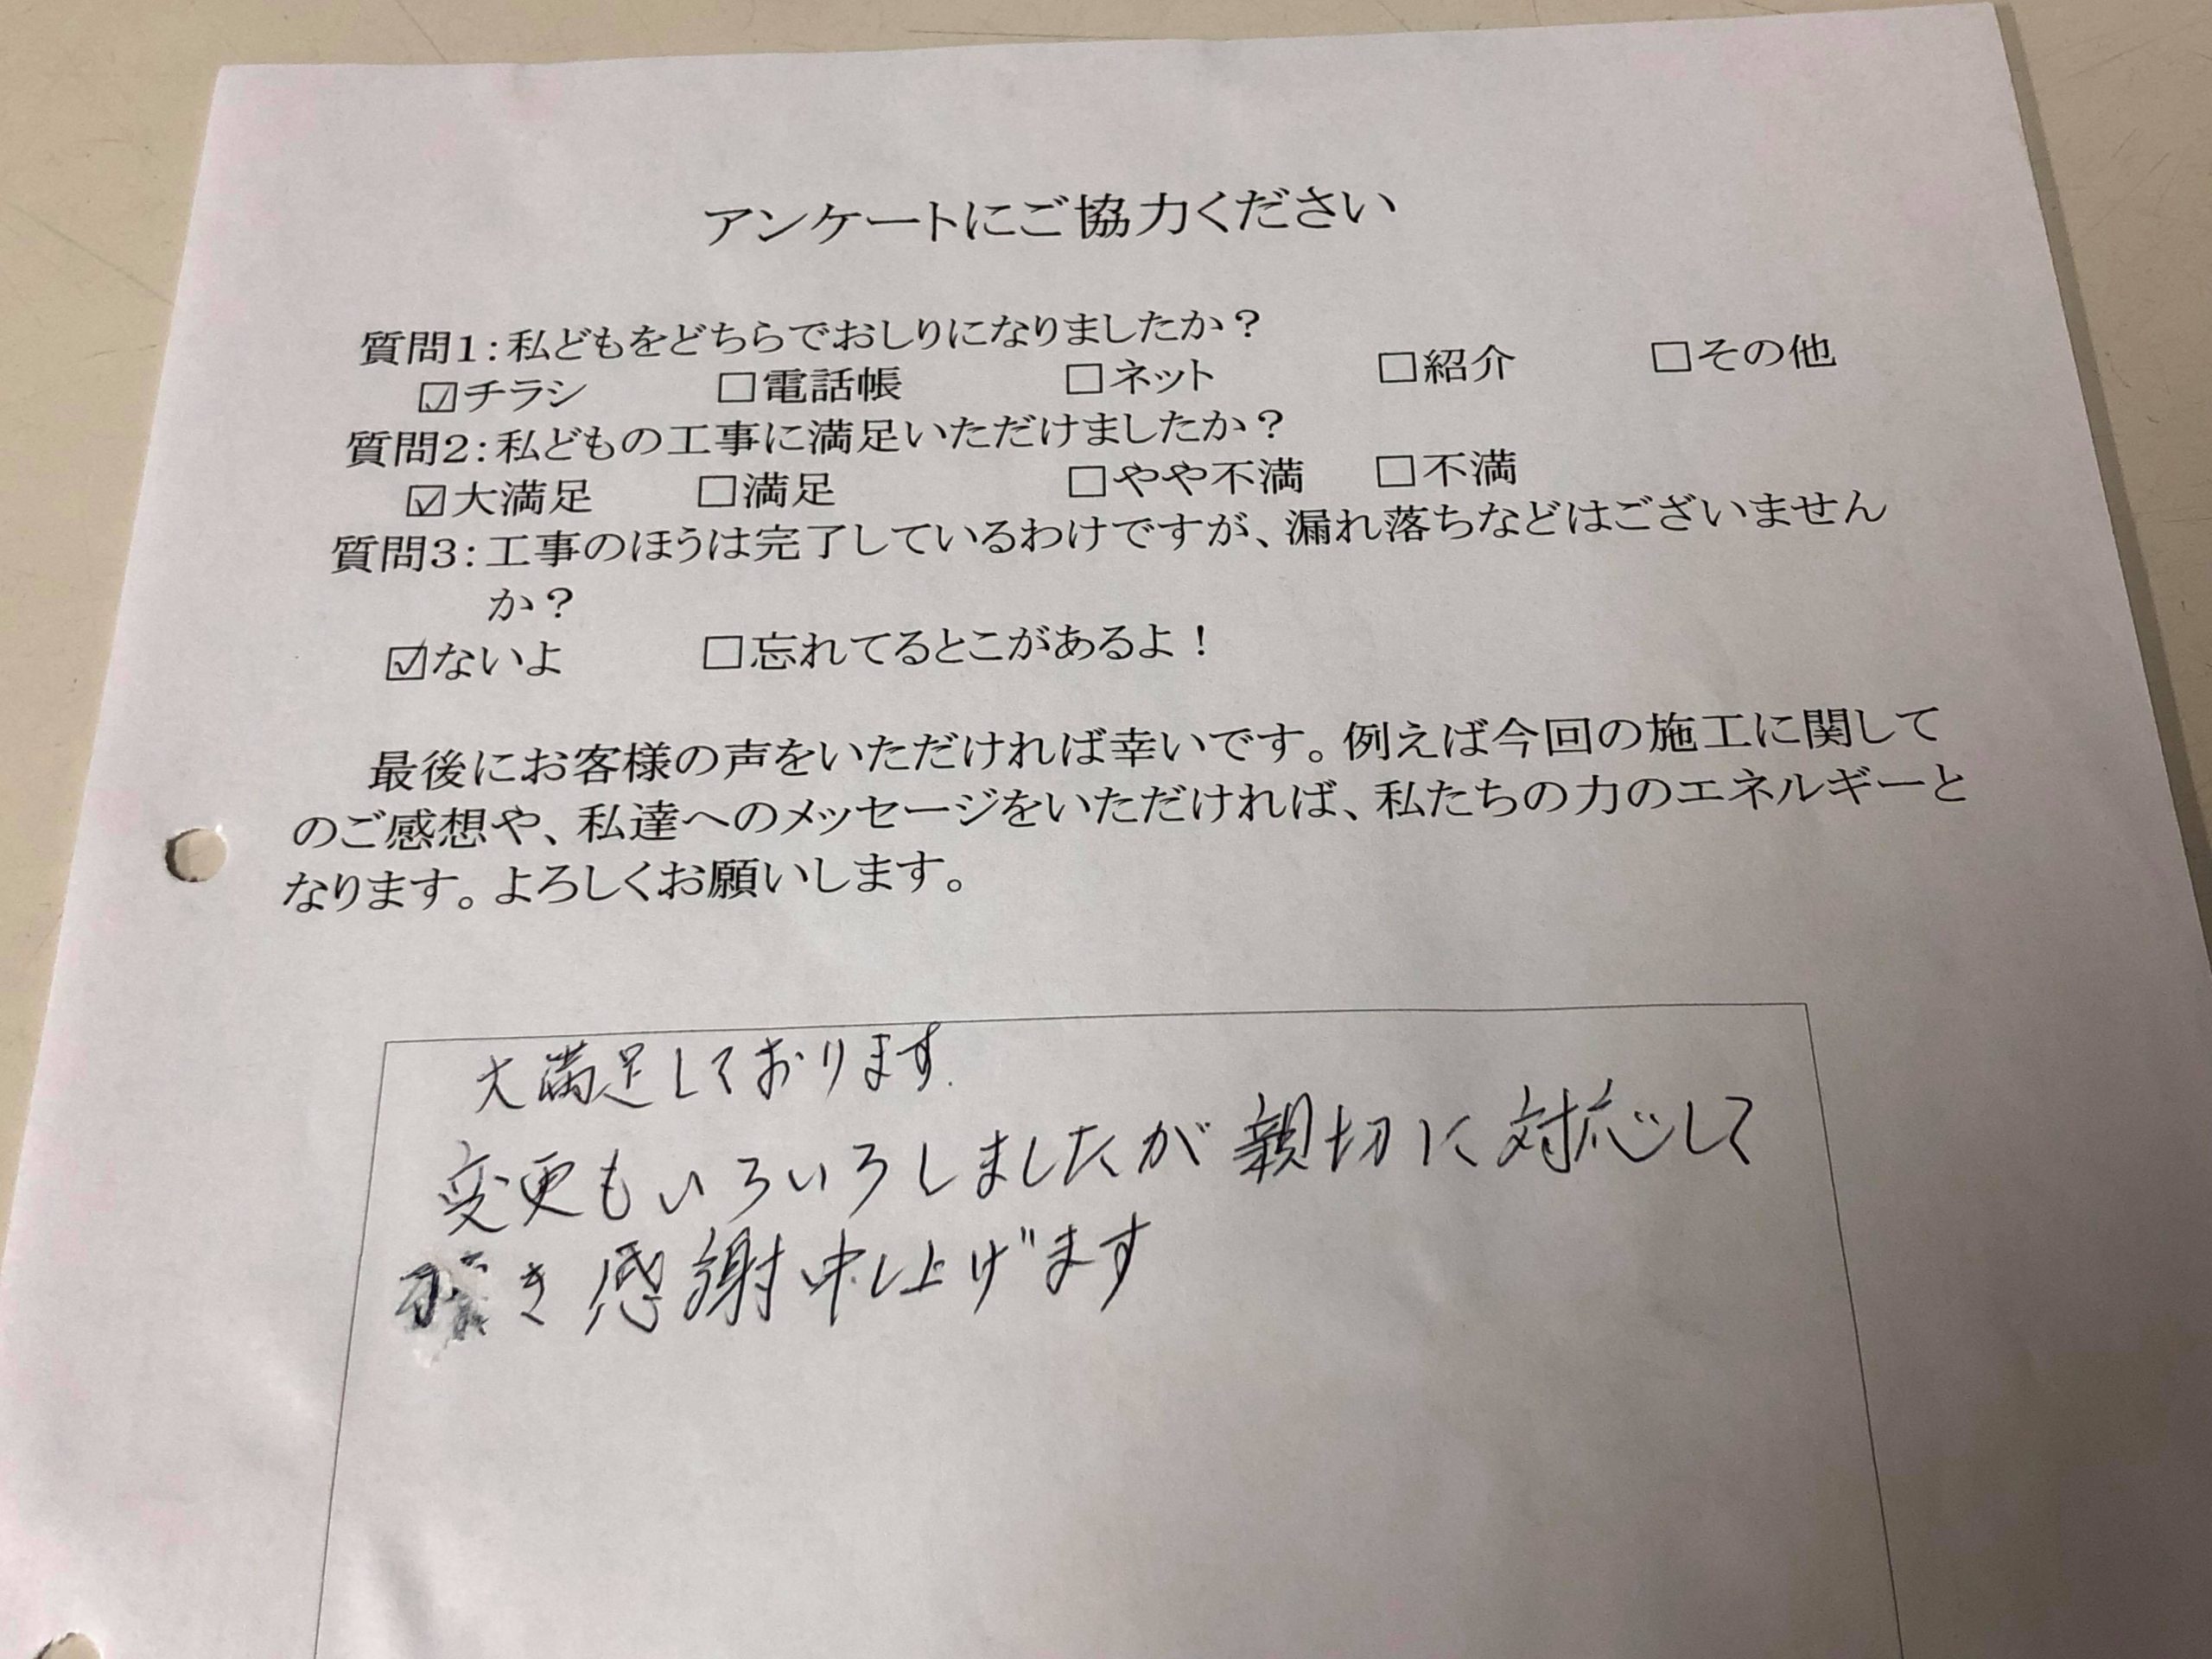 アンケートにご協力ください
質問1：私どもをどちらでおしりになりましたか？
☑チラシ □電話帳 □ネット □紹介 □その他
質問2：私どもの工事に満足いただけましたか？
☑大満足 □満足 □やや不満 □不満
質問3：工事のほうは完了しているわけですが、漏れ落ちなどはございません
か？
☑ないよ □忘れてるとこがあるよ！
最後にお客様の声をいただければ幸いです。例えば今回の施工に関して
のご感想や、私達へのメッセージをいただければ、私たちの力のエネルギーと
なります。よろしくお願いします。
大満足しております.
変更もいろいろしましたが親切に対応して
き感謝申し上げます